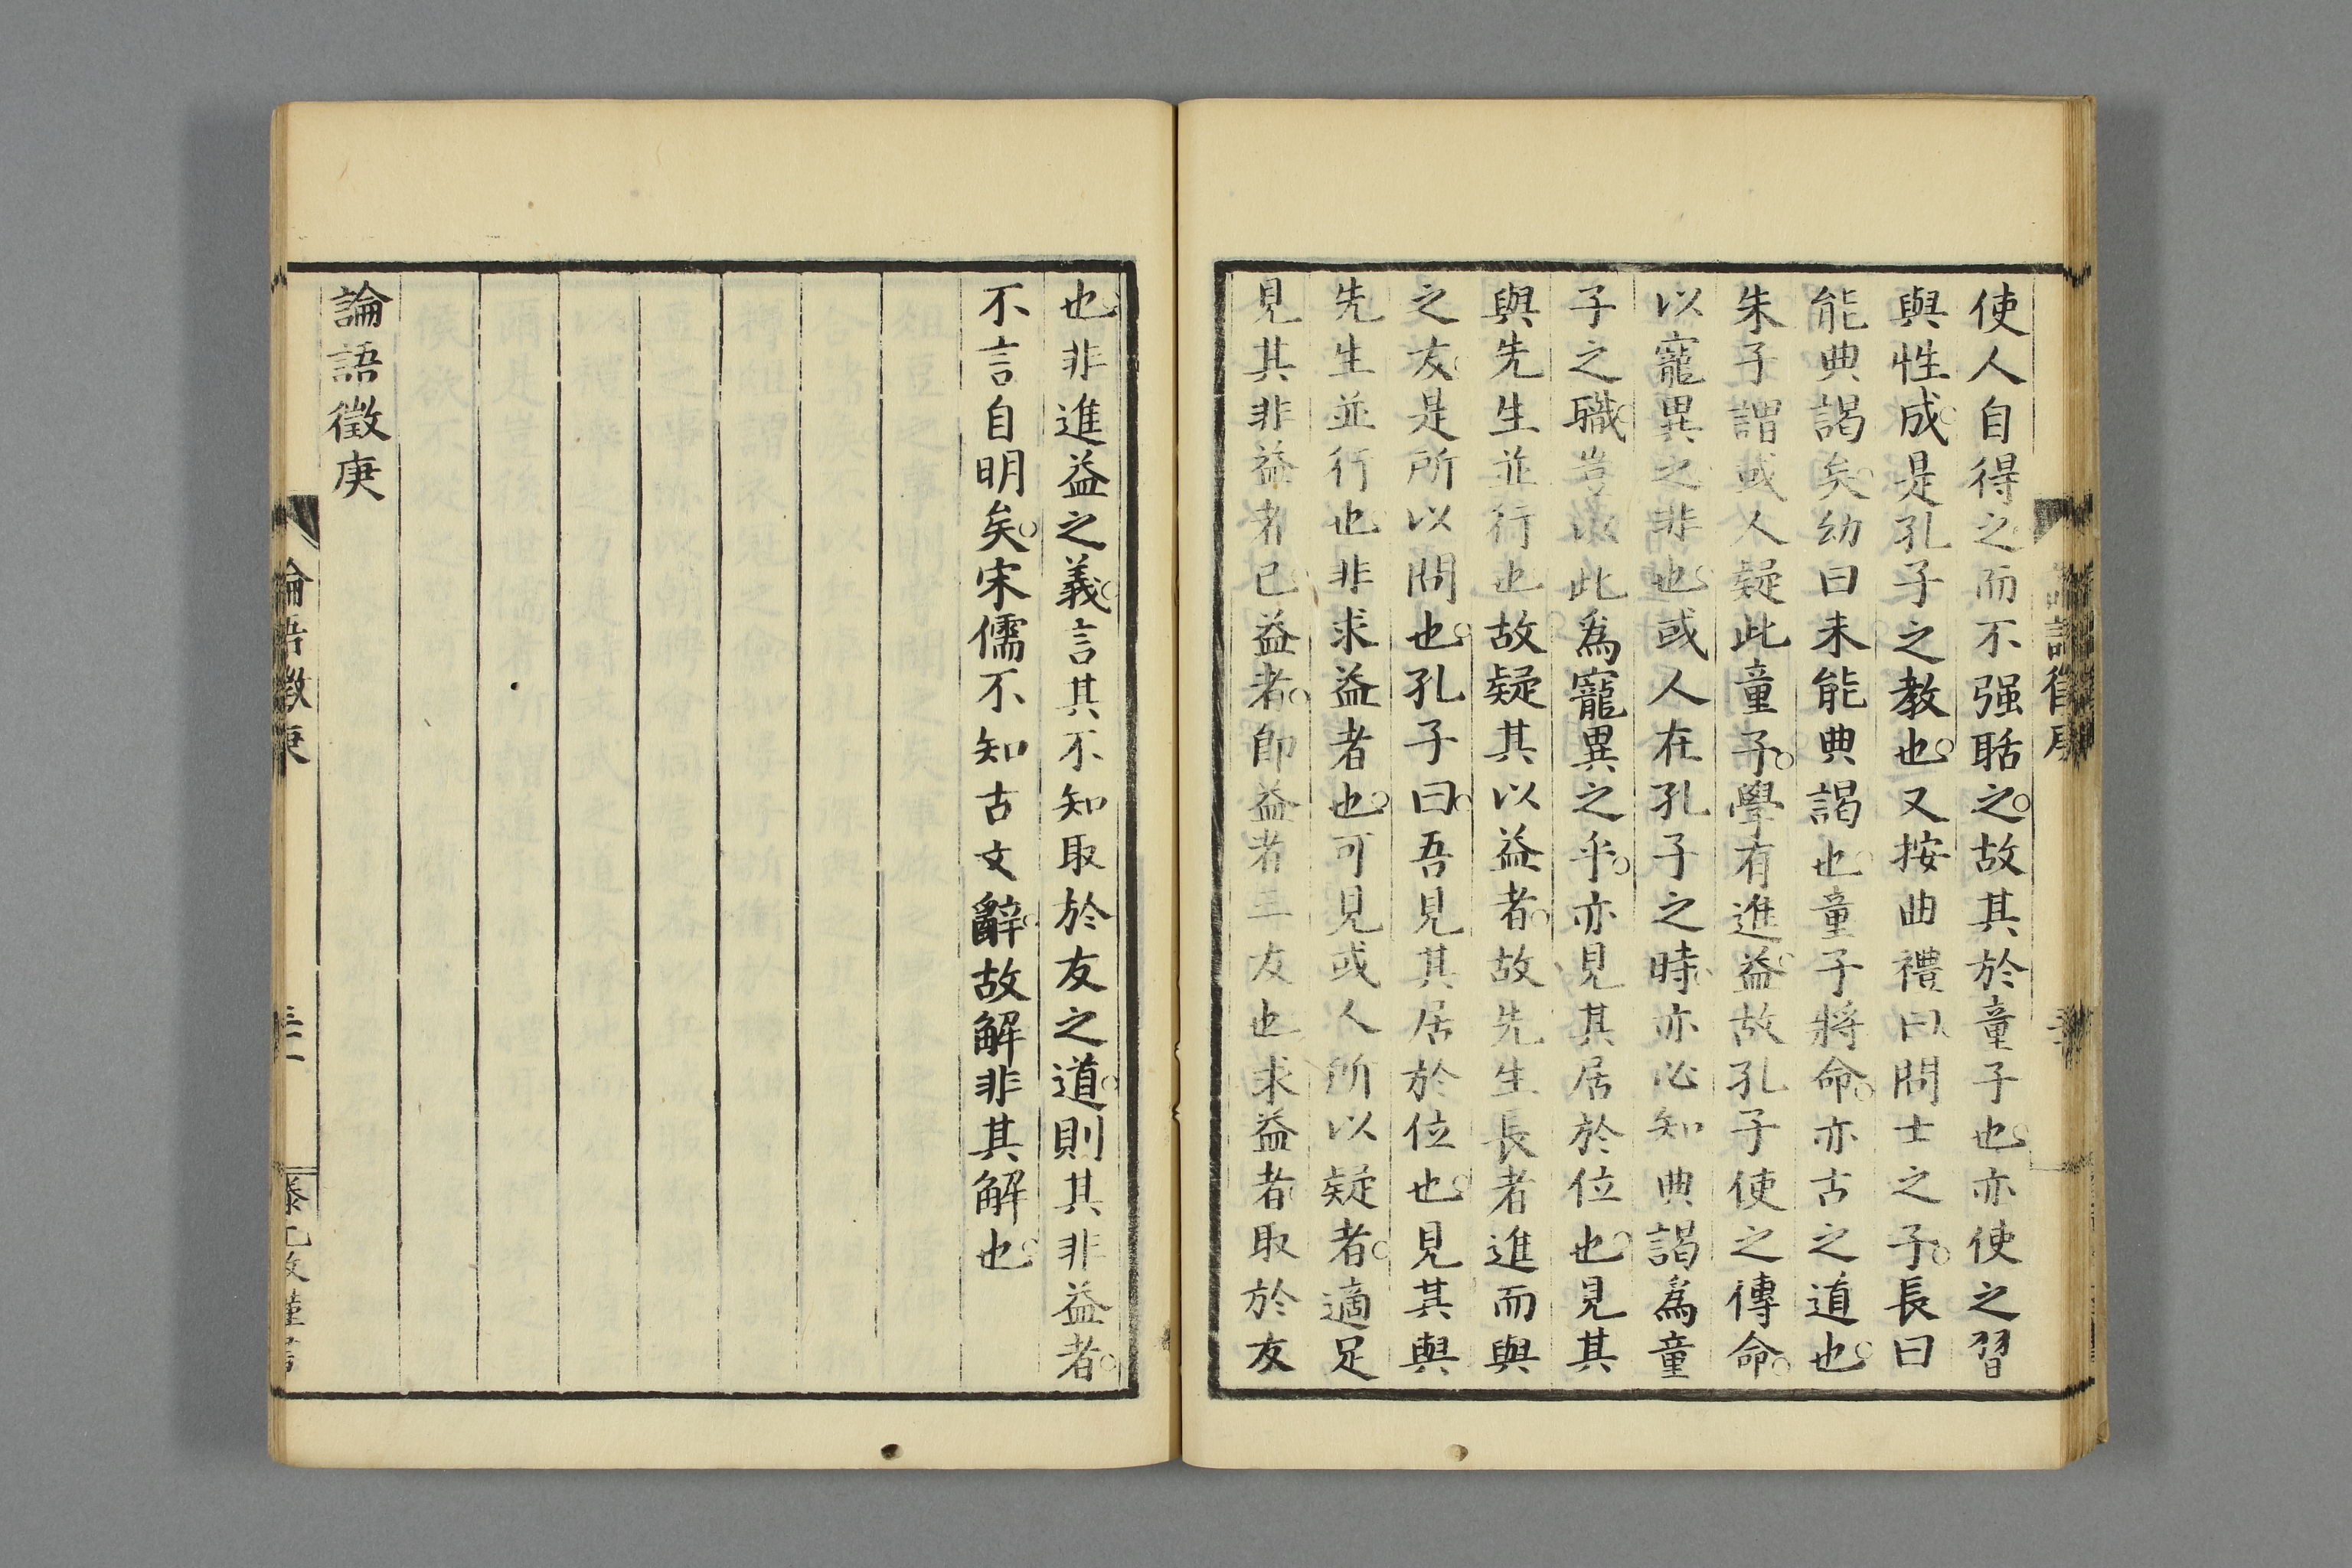 使人自得之而不强聒之故其於童子也亦使之習
與性成是孔子之教也又按曲禮曰問士之子長曰
能典謁矣幼曰未能典謁也童子將命亦古之道也
朱子謂或人疑此童子學有進益故孔子使之傳命
以寵異之非也或人在孔子之時亦必知典謁爲童
子之職豈以此爲寵異之乎亦見其居於位也見其
與先生並行也故疑其以益者故先生長者進而與
之友是所以問也孔子曰吾見其居於位也見其與
先生並行也非求益者也可見或人所以疑者適足
見其非益者已益者即益者三友也求益者取於友
也非進益之義言其不知取於友之道則其非益者
不言自明矣宋儒不知古文辭故解非其解也
論語徵庚
論語徵庚